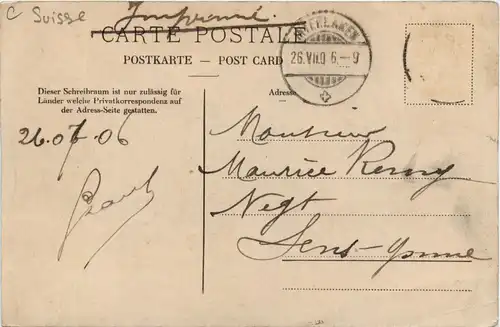 C Suisse
Imprimé.
CARTE POSTALE
POSTKARTE — POST CARD
26.VII.0 6.-9
Dieser Schreibraum ist nur zulässig für
Länder welche Privatkorrespondenz auf
der Adress-Seite gestatten.
Adresse
26.07.06
Monsieur
Maurice Remy
Negt
Sens-Yonne